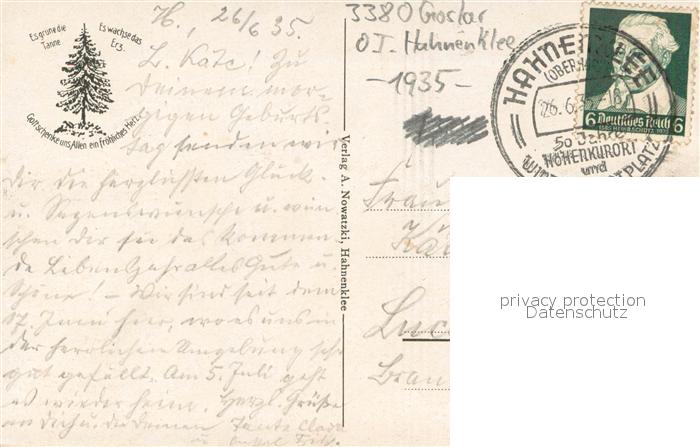 Es grüne die
Tanne
Es wachse das
Erz.
Gott schenke uns Allen ein fröhliches Herz.
H., 26/6 35.
L. Käte! Zu
Deinem mor-
gigen Geburts-
tag senden wir
Dir die herzlichsten Glück-
u. Segenswünsche u. wün-
schen Dir für das kommen-
de Lebensjahr alles Gute u.
Schöne! – Wir sind seit dem
17. Juni hier, wo es uns in
der herrlichen Umgebung sehr
gut gefällt. Am 5. Juli geht
es wieder heim. Herzl. Grüße
an Dich u. die Deinen Tante
u. Onkel
Verlag A. Nowatzki, Hahnenklee
3380 Goslar
OT. Hahnenklee
-1935-
HAHNENKLEE
(OBERHARZ)
26.6.
50 Jahre
HÖHENKURORT
und
6 Deutsches Reich 6
Frau
Luc
Brau
privacy protection
Datenschutz